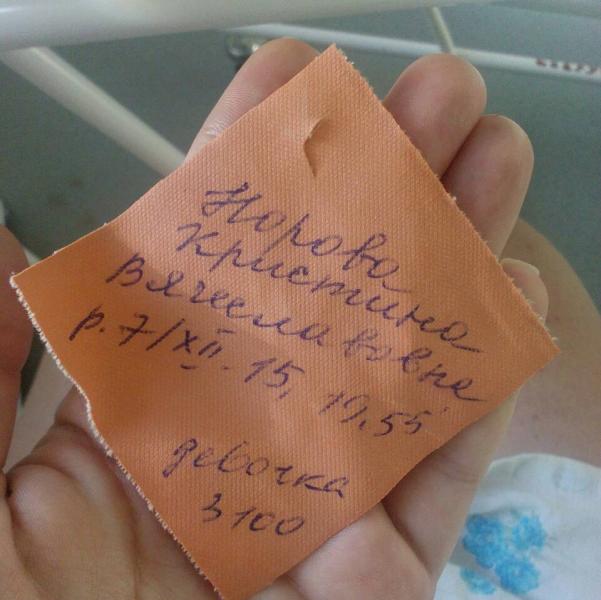 Норова
Кристина
Вячеславовна
р. 7/XII. 15, 19,55
девочка
3100